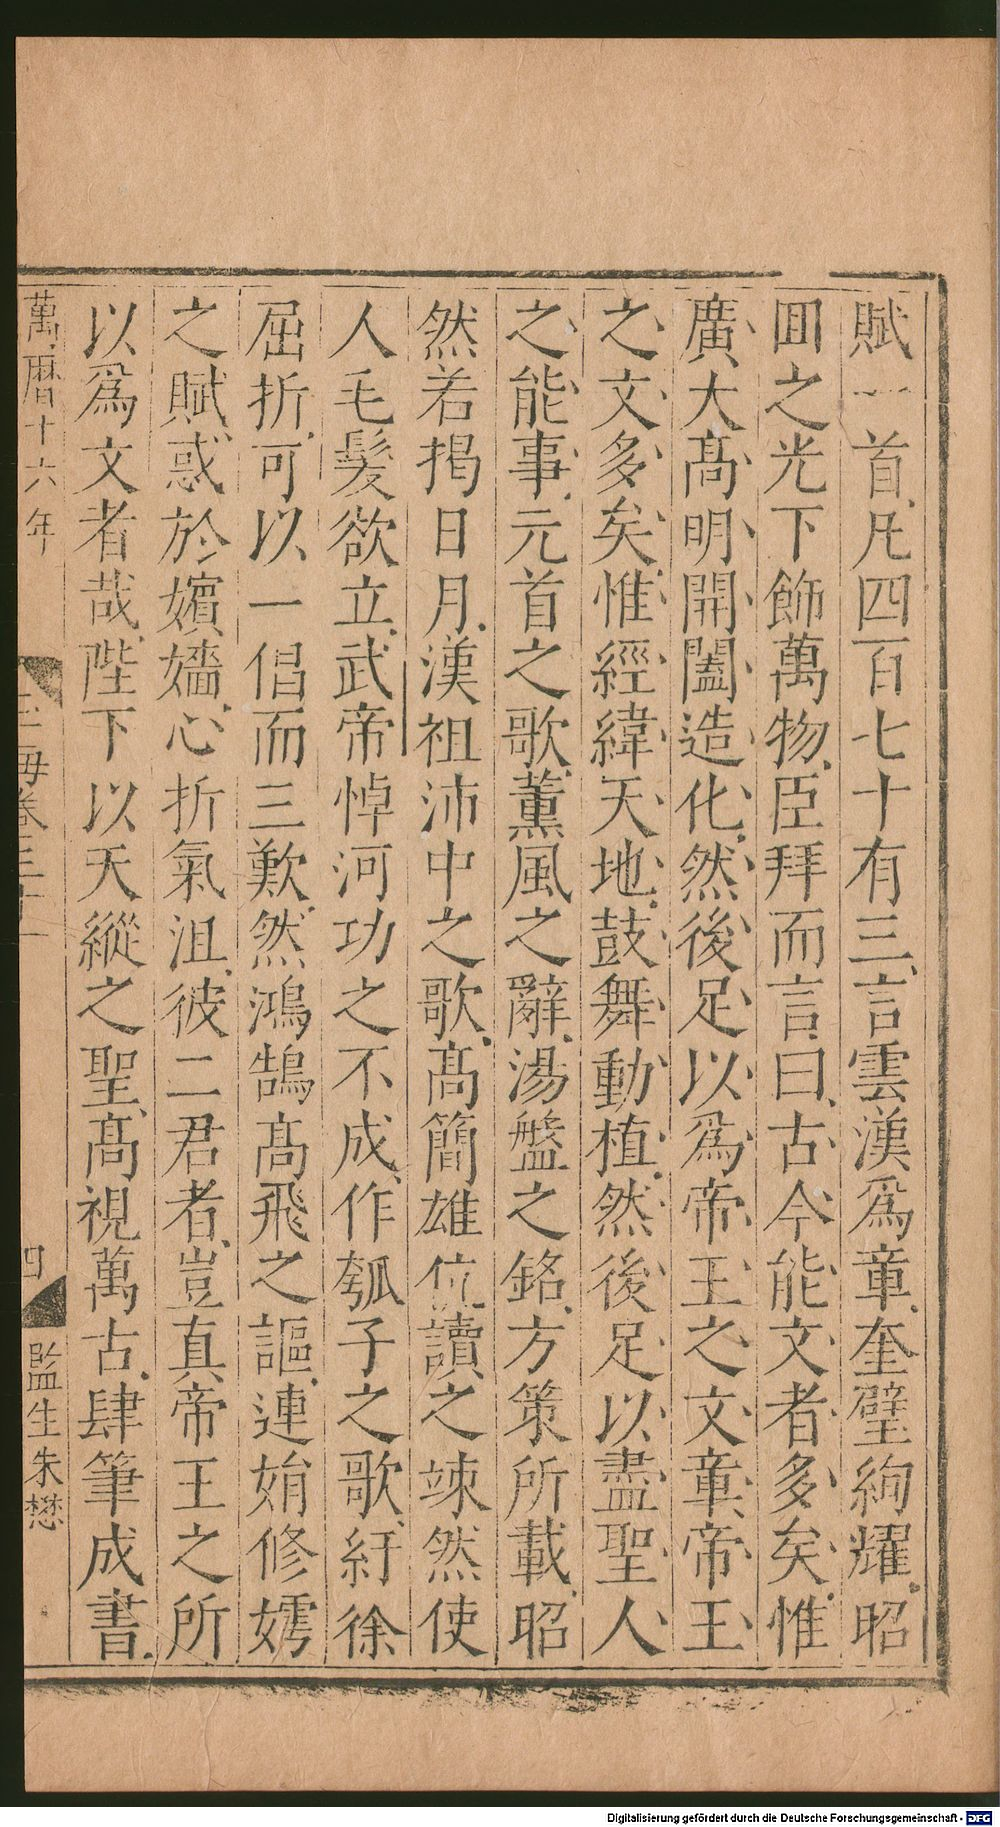 賦一首凡四百七十有三言雲漢爲章奎璧絢耀昭
回之光下飾萬物臣拜而言曰古今能文者多矣惟
廣大高明開闔造化然後足以爲帝王之文章帝王
之文多矣惟經緯天地鼓舞動植然後足以盡聖人
之能事元首之歌薰風之辭湯盤之銘方策所載昭
然若揭日月漢祖沛中之歌高簡雄伉讀之竦然使
人毛髮欲立武帝悼河功之不成作瓠子之歌紆徐
屈折可以一倡而三歎然鴻鵠高飛之謳連娟修嫮
之賦惑於嬪嬙心折氣沮彼二君者豈真帝王之所
以爲文者哉陛下以天縱之聖高視萬古肆筆成書
萬曆十六年 海卷三十一 四 監生朱懋
Digitalisierung gefördert durch die Deutsche Forschungsgemeinschaft - DFG